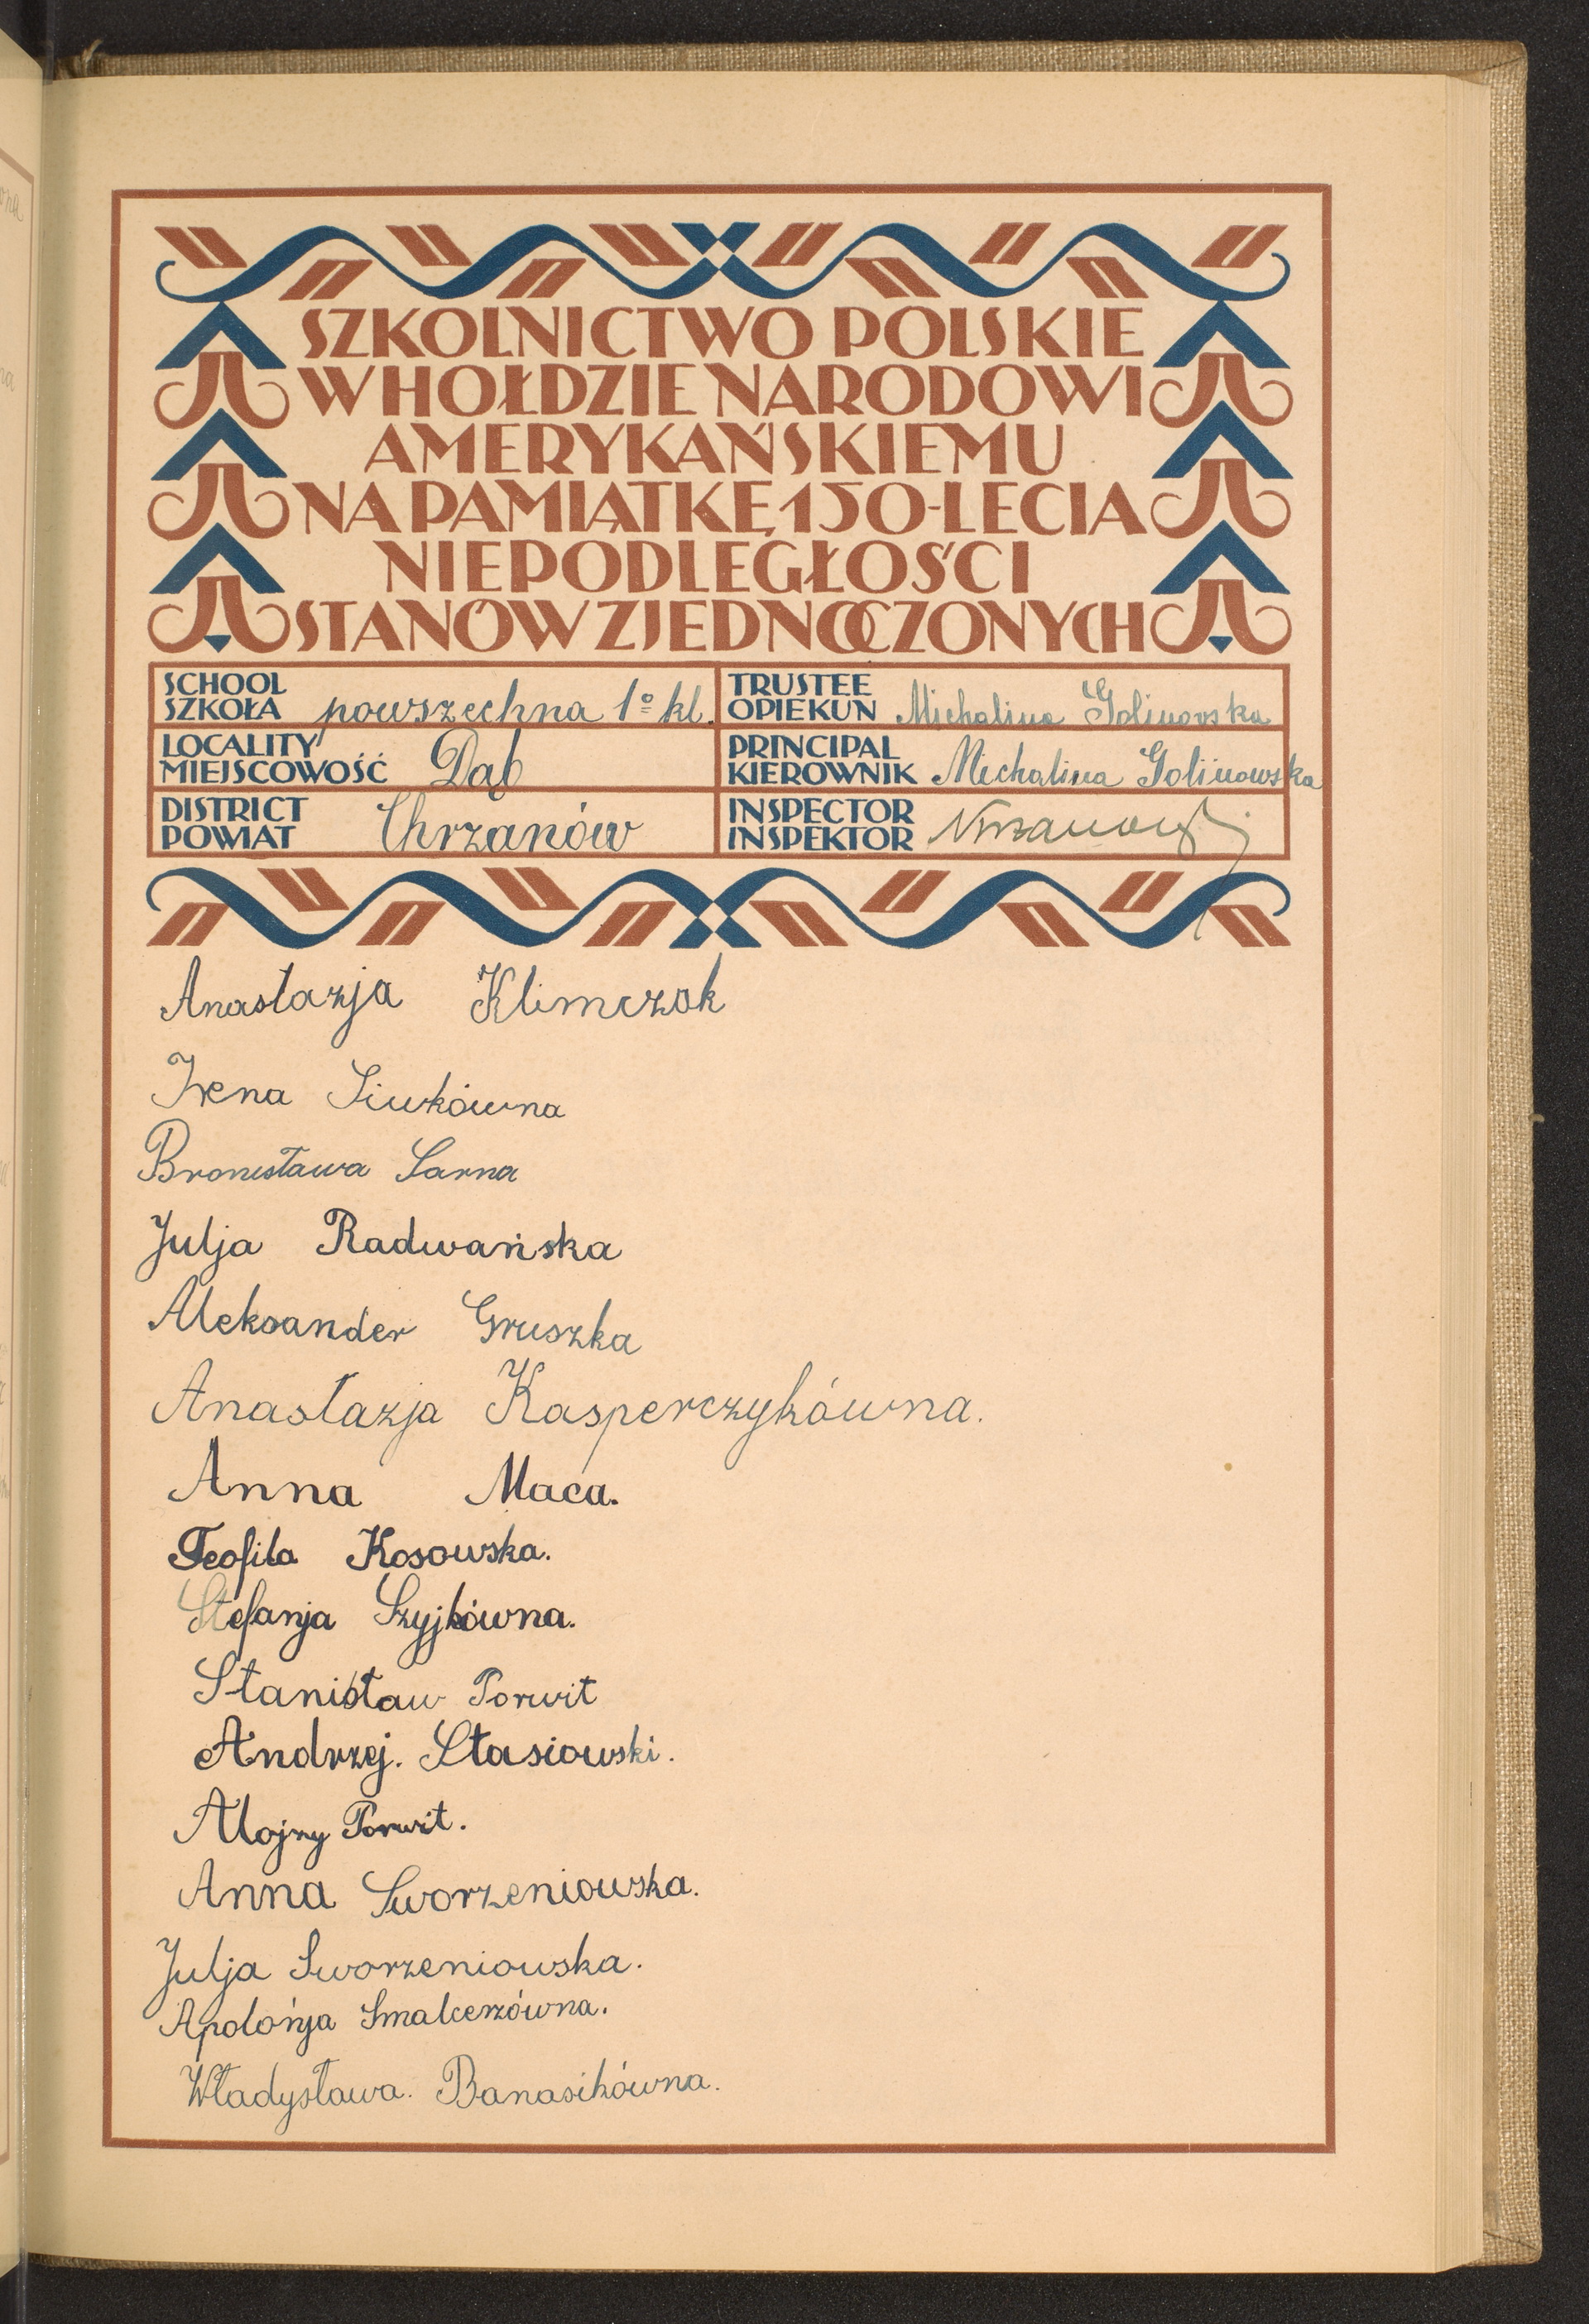 SZKOLNICTWO POLSKIE
W HOŁDZIE NARODOWI
AMERYKAŃSKIEMU
NA PAMIĄTKĘ 150-LECIA
NIEPODLEGŁOŚCI
STANÓW ZJEDNOCZONYCH
SCHOOL
SZKOŁA powszechna 1º kl.
TRUSTEE
OPIEKUN Michalina Golinowska
LOCALITY
MIEJSCOWOŚĆ Dąb
PRINCIPAL
KIEROWNIK Michalina Golinowska
DISTRICT
POWIAT Chrzanów
INSPECTOR
INSPEKTOR
Anastazja Klimczok
Irena Siwkówna
Bronisława Sarna
Julja Radwańska
Aleksander Gruszka
Anastazja Kasperczykówna.
Anna Maca.
Teofila Kosowska.
Stefanja Szyjkówna.
Stanisław Porwit
Andrzej. Stasiowski.
Alojzy Porwit.
Anna Sworzeniowska.
Julja Sworzeniowska.
Apolońja Smalcerzówna.
Władysława. Banasikówna.